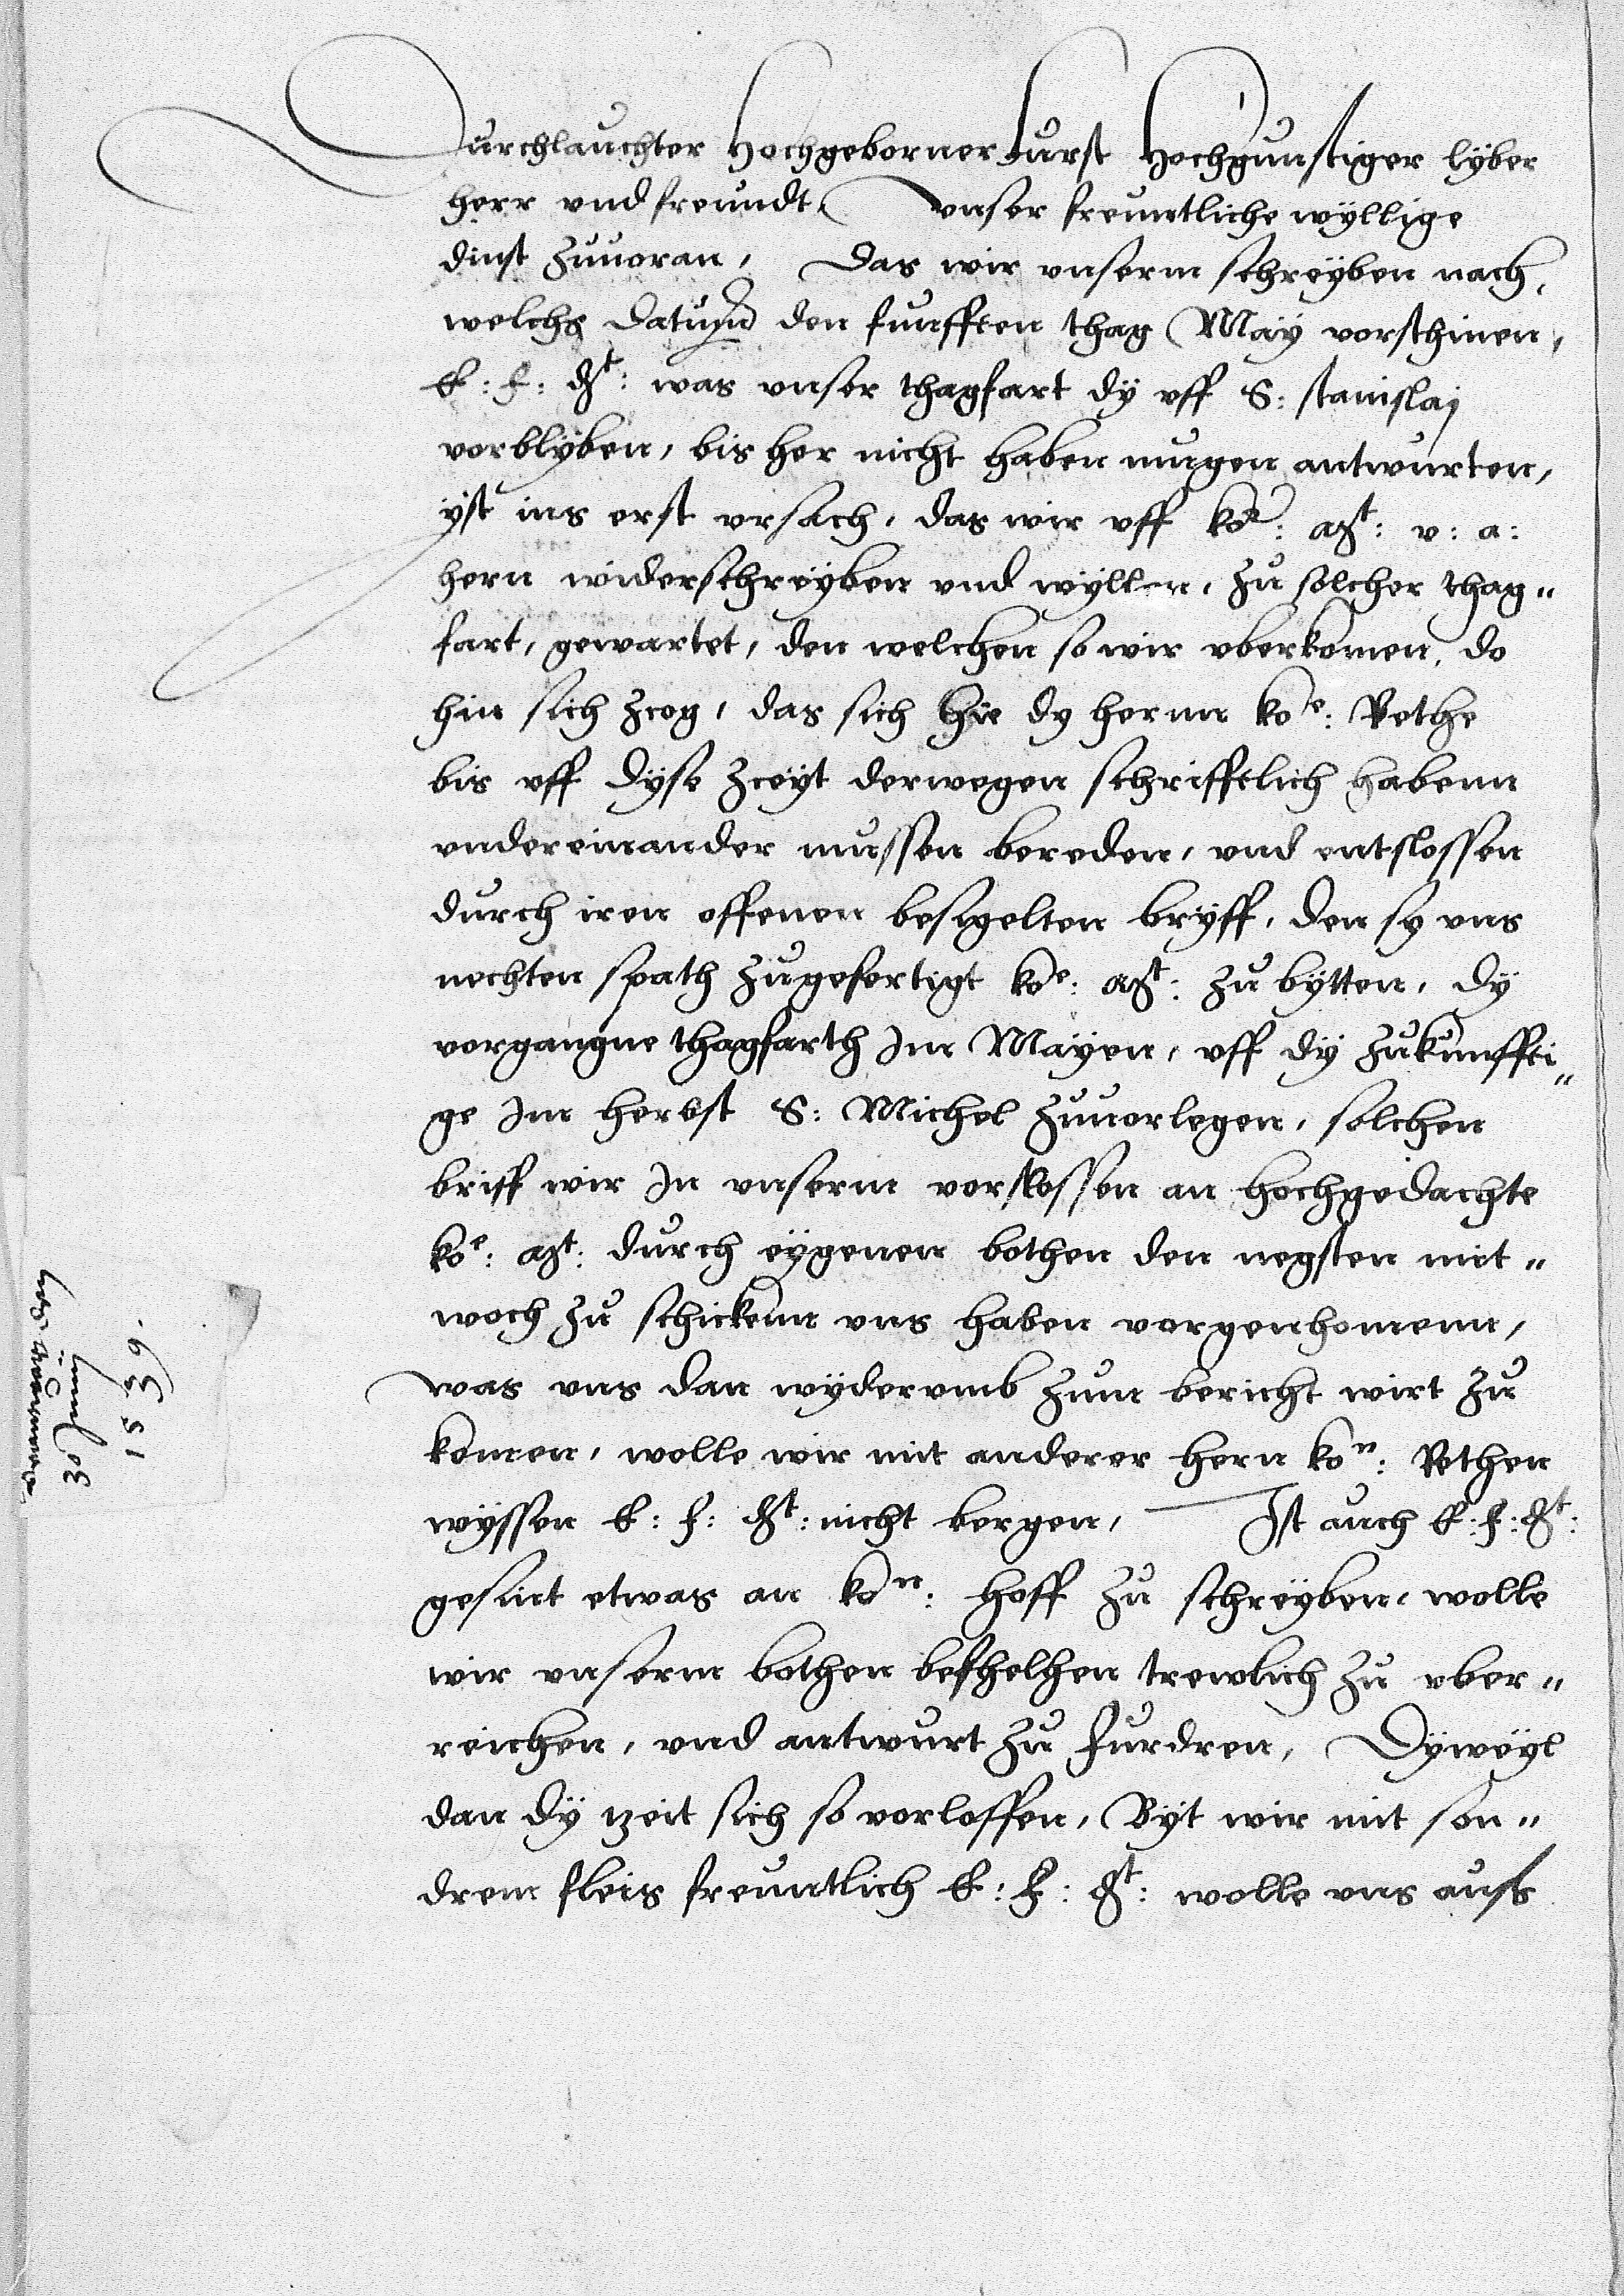 Durchlauchter Hochgeborner Furst Hochgunstiger lyber
herr vnd freundt. Vnser freuntliche wyllige
dinst zuuoran, Das wir vnserm schreyben nach,
welchs datum den funfften thag May vorschinen,
E: F: gt: was vnser thagfart dy vff S: stanislaj
vorblyben, bis her nicht haben mugen antwurten,
yst ins erst vrsach, das wir vff koe: Mt: v: a:
hern widerschreyben vnd wyllen, zu solcher thag„
fart, gewartet, den welchen so wir vberkomen, do
hin sich zcog, das sich hie dy hernn koe: Rethe
bis vff dyse zceyt derwegen schrifftlich habenn
vndereinander mussen bereden, vnd entslossen
durch iren offenen besygelten bryff, den sy vns
nechten spath zugefertigt koe: Mt: zu bytten, dy
vorgangne thagfarth Im Mayen, vff dy zukunffti„
ge Im herbst S: Michel zuuorlegen, solchen
briff wir In vnserm vorslossen an hochgedachte
koe: Mt: durch eygenen bothen den negsten mit„
woch zu schickenn vns haben vorgenhomenn,
was vns dan wyderumb zum bericht wirt zu
komen, wolle wir mit anderer hern kon: Rethen
wyssen E: F: gt: nicht bergen, Ist auch E: F: gt:
gesint etwas an kon: Hoff zu schreyben, wolle
wir vnserm bothen befhelhen trewlich zu vber„
reichen, vnd antwurt zu furdren, Dyweyl
dan dy tzeit sich so vorloffen, Byt wir mit son„
drem fleis freuntlich E: F: gt: wolle vns aufs
1536.
30 Junij